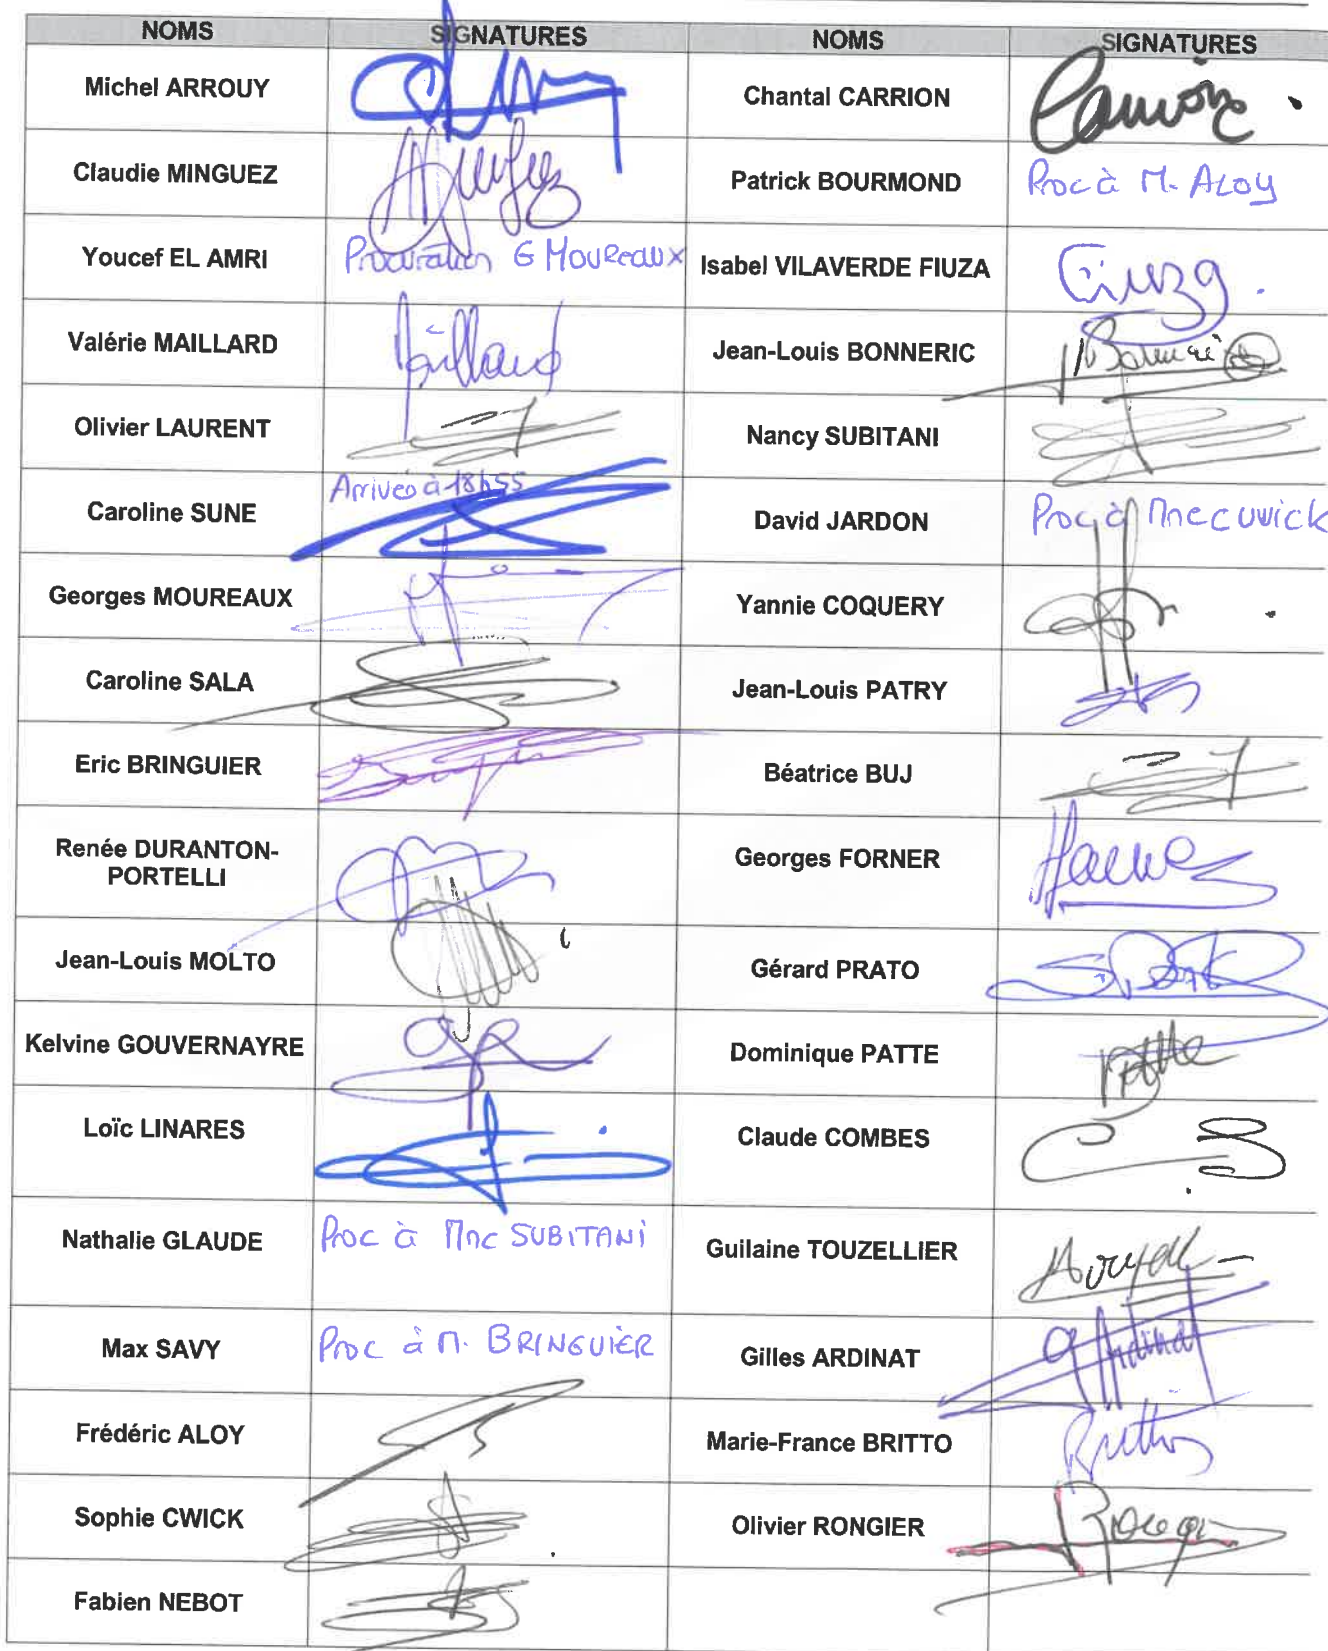 NOMS SIGNATURES NOMS SIGNATURES
Michel ARROUY Chantal CARRION
Claudie MINGUEZ Patrick BOURMOND Proc à M. ALOY
Youcef EL AMRI Procuration G MOUReaUX Isabel VILAVERDE FIUZA Fiuza
Valérie MAILLARD Maillard Jean-Louis BONNERIC
Olivier LAURENT Nancy SUBITANI
Caroline SUNE Arrivée à 18h55 David JARDON Proc à Mme CWICK
Georges MOUREAUX Yannie COQUERY
Caroline SALA Jean-Louis PATRY
Eric BRINGUIER Béatrice BUJ
Renée DURANTON-
PORTELLI Georges FORNER
Jean-Louis MOLTO Gérard PRATO
Kelvine GOUVERNAYRE Dominique PATTE
Loïc LINARES Claude COMBES
Nathalie GLAUDE Proc à Mme SUBITANI Guilaine TOUZELLIER
Max SAVY Proc à M. BRINGUIER Gilles ARDINAT
Frédéric ALOY Marie-France BRITTO Britto
Sophie CWICK Olivier RONGIER
Fabien NEBOT